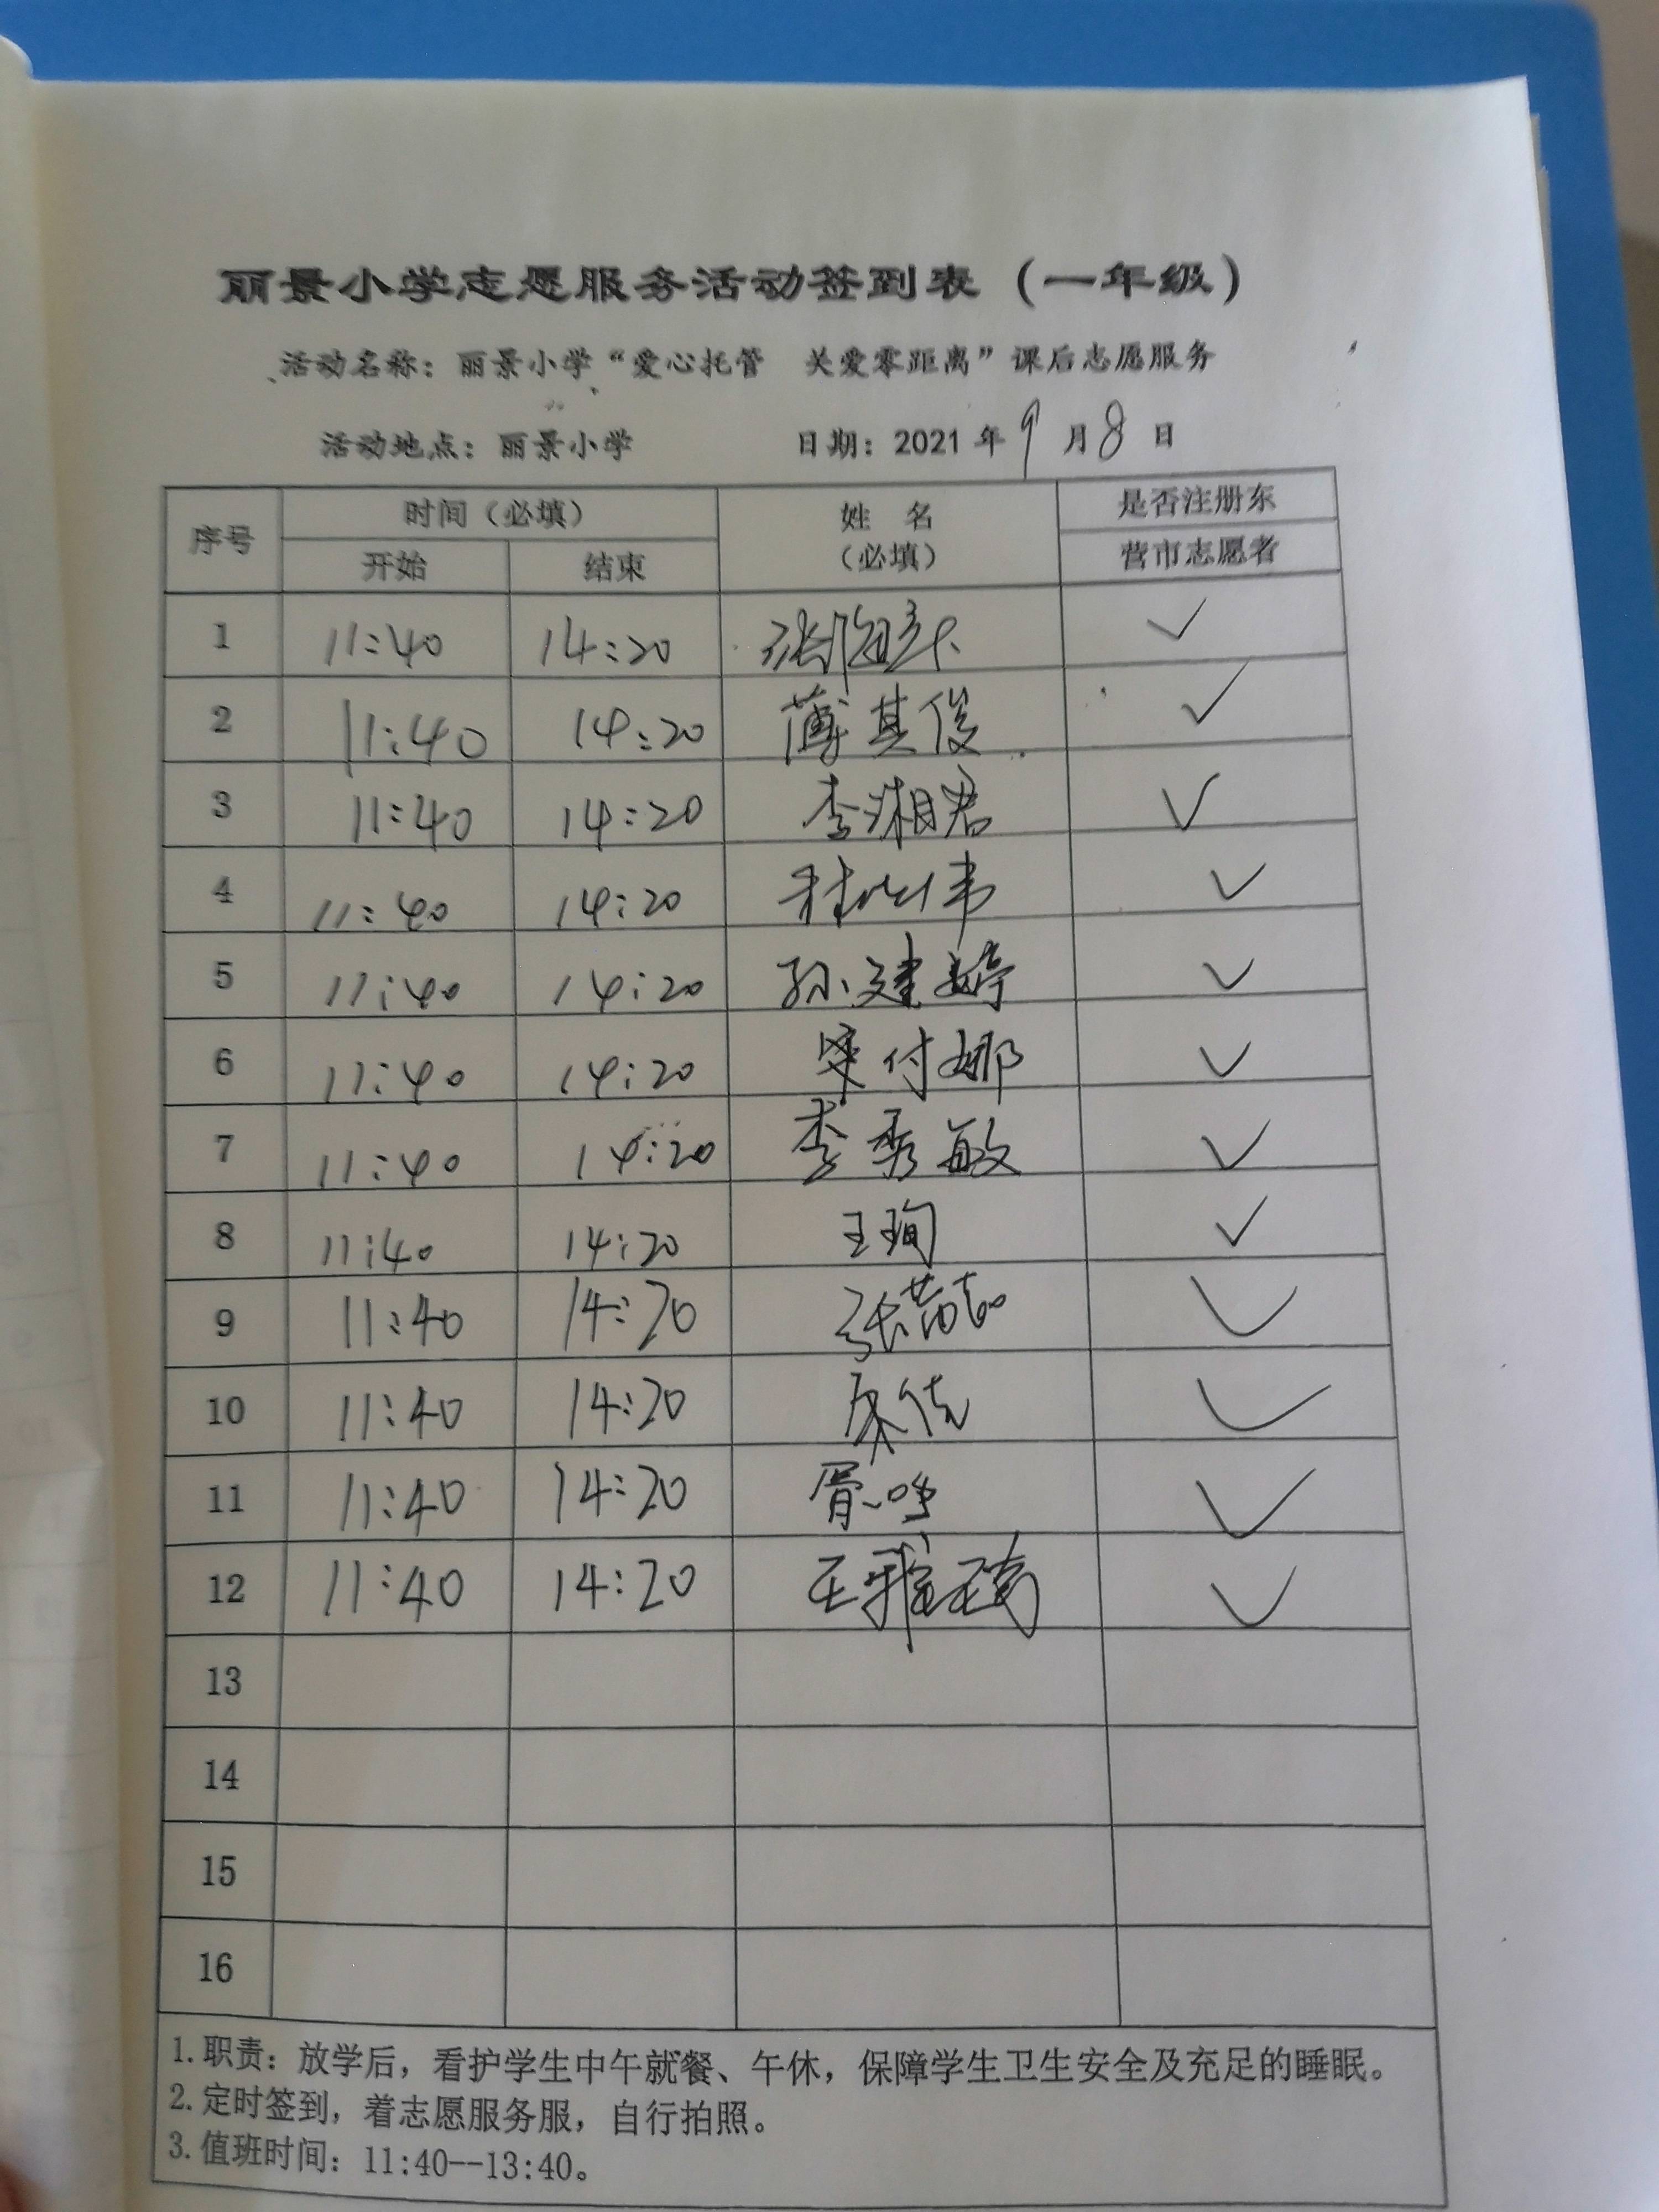 丽景小学志愿服务活动签到表（一年级）
活动名称：丽景小学“爱心托管 关爱零距离”课后志愿服务
活动地点：丽景小学 日期：2021 年 9 月 8 日
序号 时间（必填） 姓 名 是否注册东
开始 结束 （必填） 营市志愿者
1 11:40 14:20 ✓
2 11:40 14:20 薄其俊 ✓
3 11:40 14:20 李湘君 ✓
4 11:40 14:20 ✓
5 11:40 14:20 孙建婷 ✓
6 11:40 14:20 付娜 ✓
7 11:40 14:20 李秀敏 ✓
8 11:40 14:20 王珣 ✓
9 11:40 14:20 张 ✓
10 11:40 14:20 ✓
11 11:40 14:20 ✓
12 11:40 14:20 王雅琦 ✓
13
14
15
16
1.职责：放学后，看护学生中午就餐、午休，保障学生卫生安全及充足的睡眠。
2.定时签到，着志愿服务服，自行拍照。
3.值班时间：11:40--13:40。